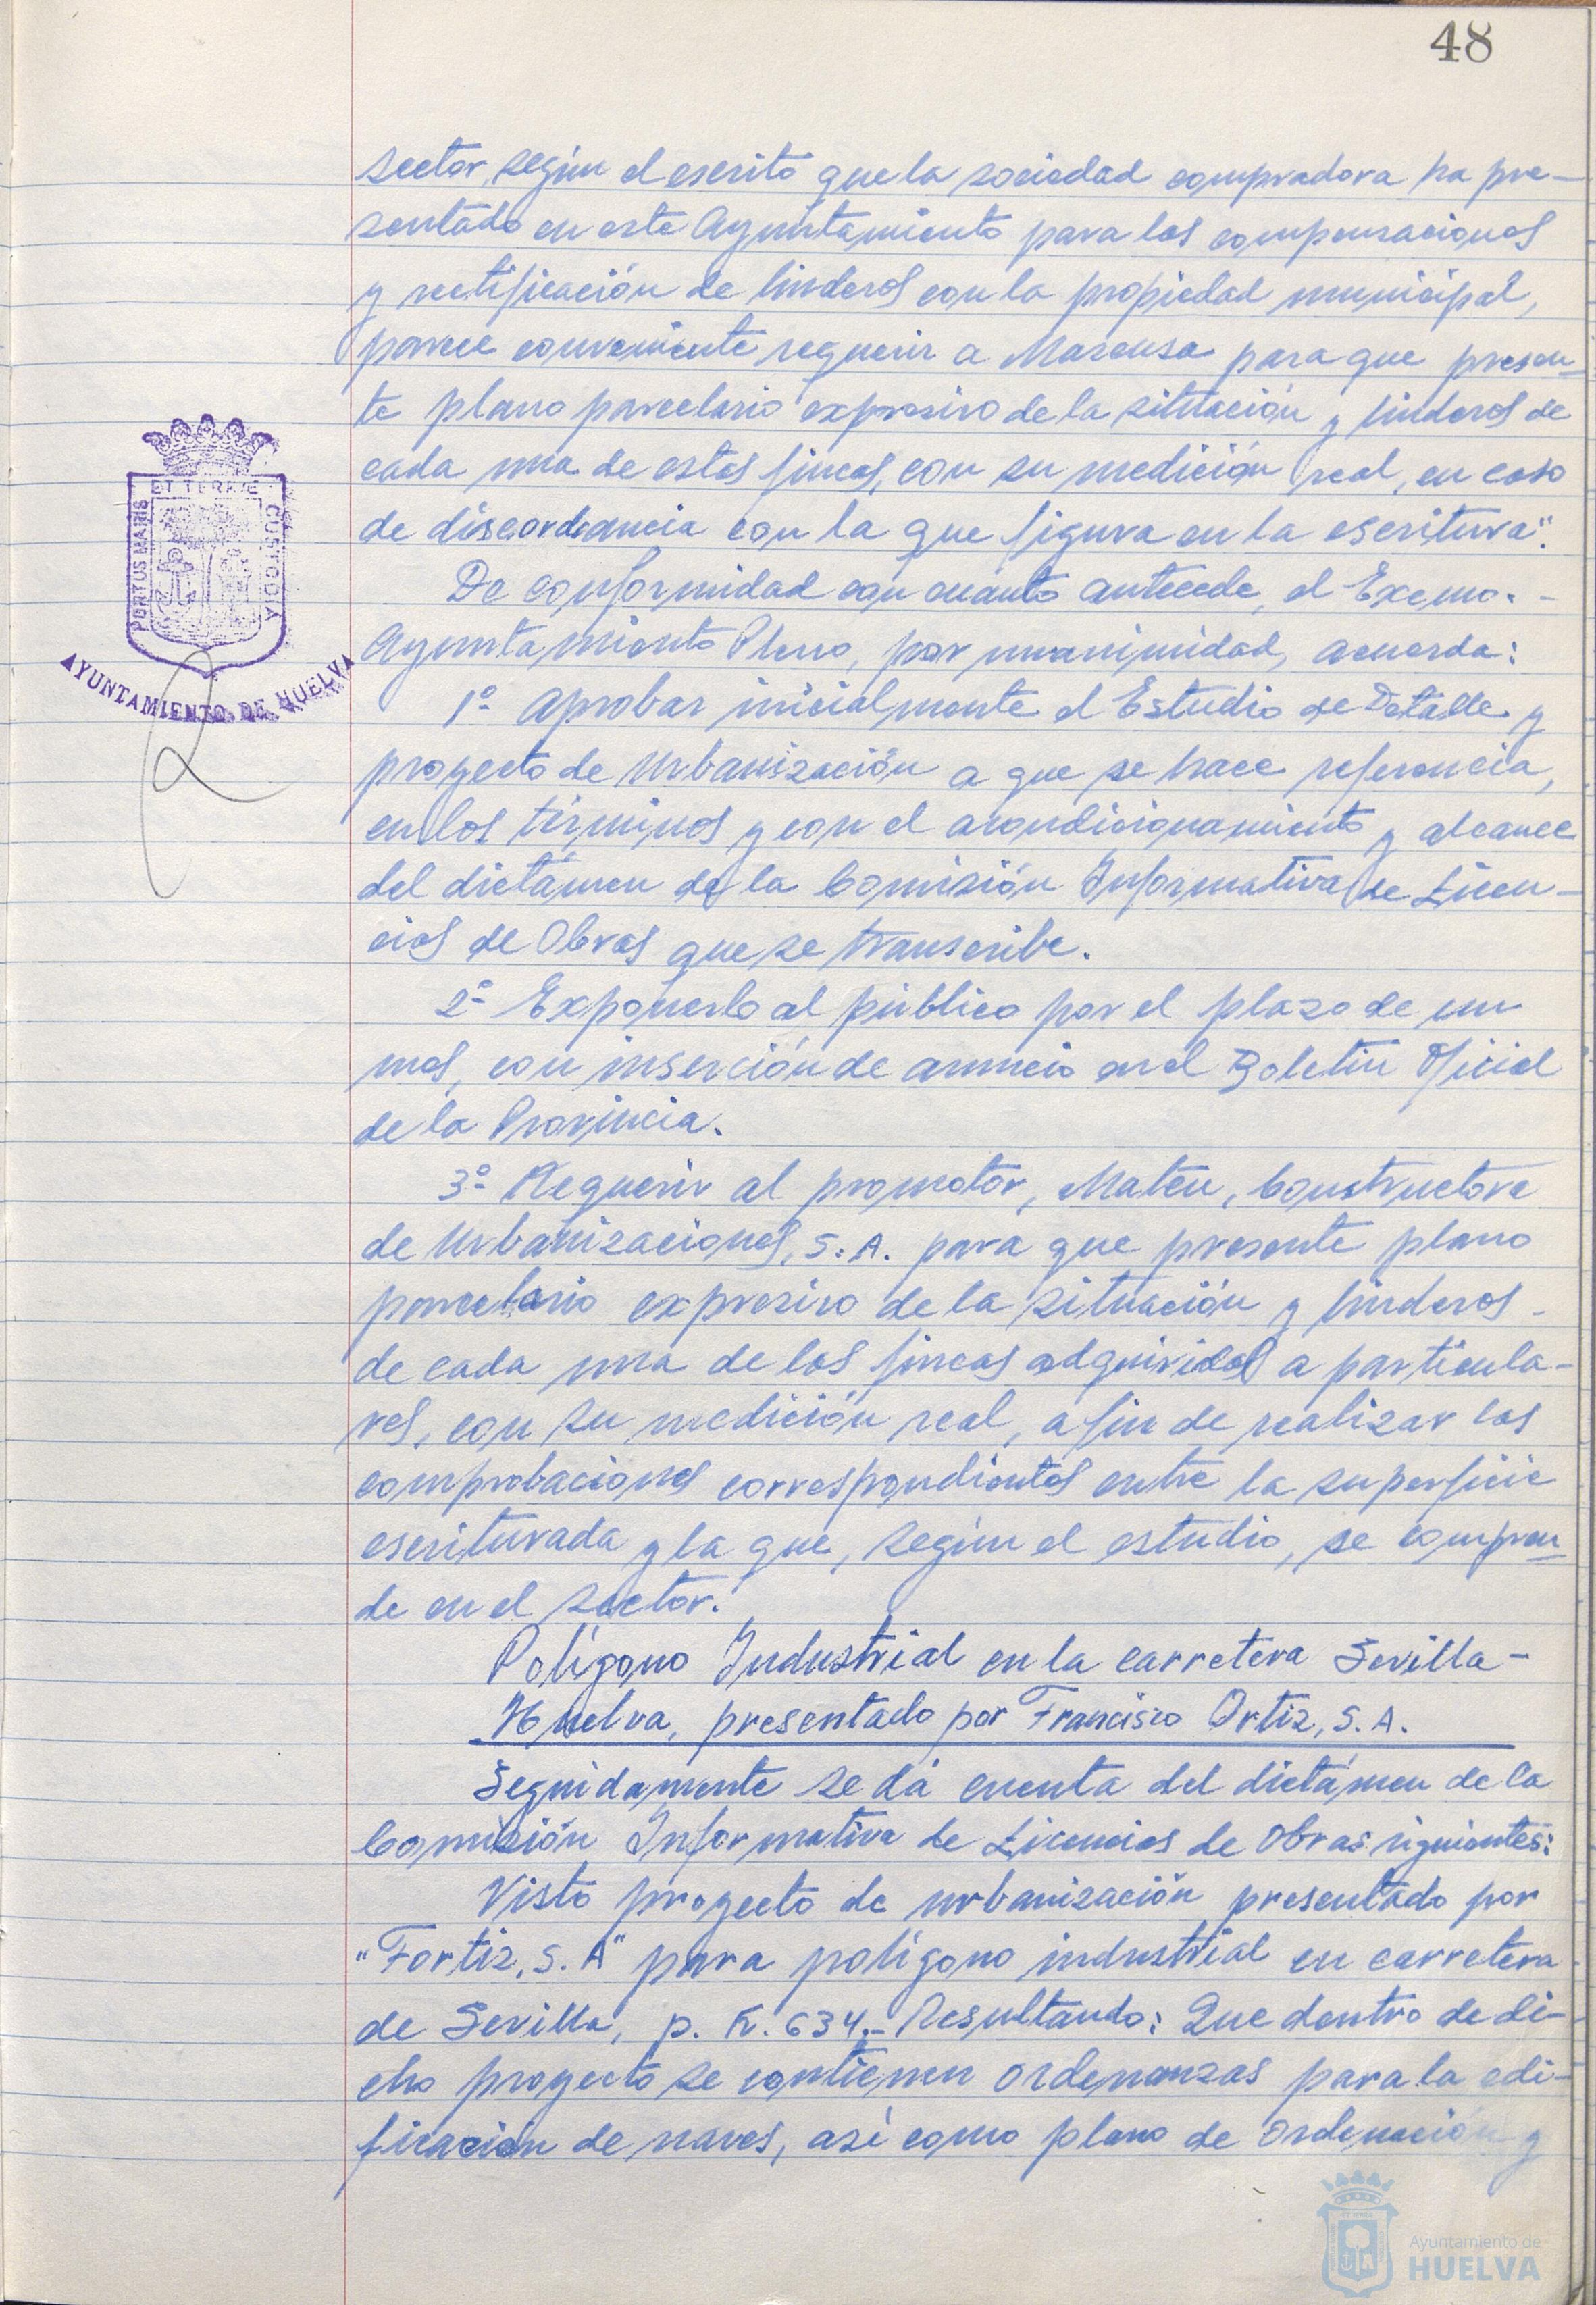 48
sector, según el escrito que la sociedad compradora ha pre-
sentado en este Ayuntamiento para las compensaciones
y rectificación de linderos con la propiedad municipal,
parece conveniente requerir a Macusa para que presen-
te plano parcelario expresivo de la situación y linderos de
cada una de estas fincas, con su medición real, en caso
de discordancia con la que figura en la escritura".
De conformidad con cuanto antecede, el Excmo. -
Ayuntamiento Pleno, por unanimidad, acuerda:
1º Aprobar inicialmente el Estudio de Detalle y
proyecto de Urbanización a que se hace referencia,
en los términos y con el acondicionamiento y alcance
del dictámen de la Comisión Informativa de Licen-
cias de Obras que se transcribe.
2º Exponerlo al público por el plazo de un
mes, con inserción de anuncio en el Boletín Oficial
de la Provincia.
3º Requerir al promotor, Mateu, Constructora
de Urbanizaciones, S.A. para que presente plano
parcelario expresivo de la situación y linderos -
de cada una de las fincas adquiridas a particula-
res, con su medición real, a fin de realizar las
comprobaciones correspondientes entre la superficie
escriturada y la que, según el estudio, se compren-
de en el sector.
Polígono Industrial en la carretera Sevilla-
Huelva, presentado por Francisco Ortiz, S.A.
Seguidamente se dá cuenta del dictámen de la
Comisión Informativa de Licencias de Obras siguientes:
Visto proyecto de urbanización presentado por
"Fortiz, S.A" para polígono industrial en carretera
de Sevilla, p. K. 634.- Resultando: Que dentro de di-
cho proyecto se contienen ordenanzas para la edi-
ficación de naves, así como plano de ordenación y
PORTUS MARIS
ET TERRÆ
CUSTODIA
AYUNTAMIENTO DE HUELVA
Ayuntamiento de
HUELVA